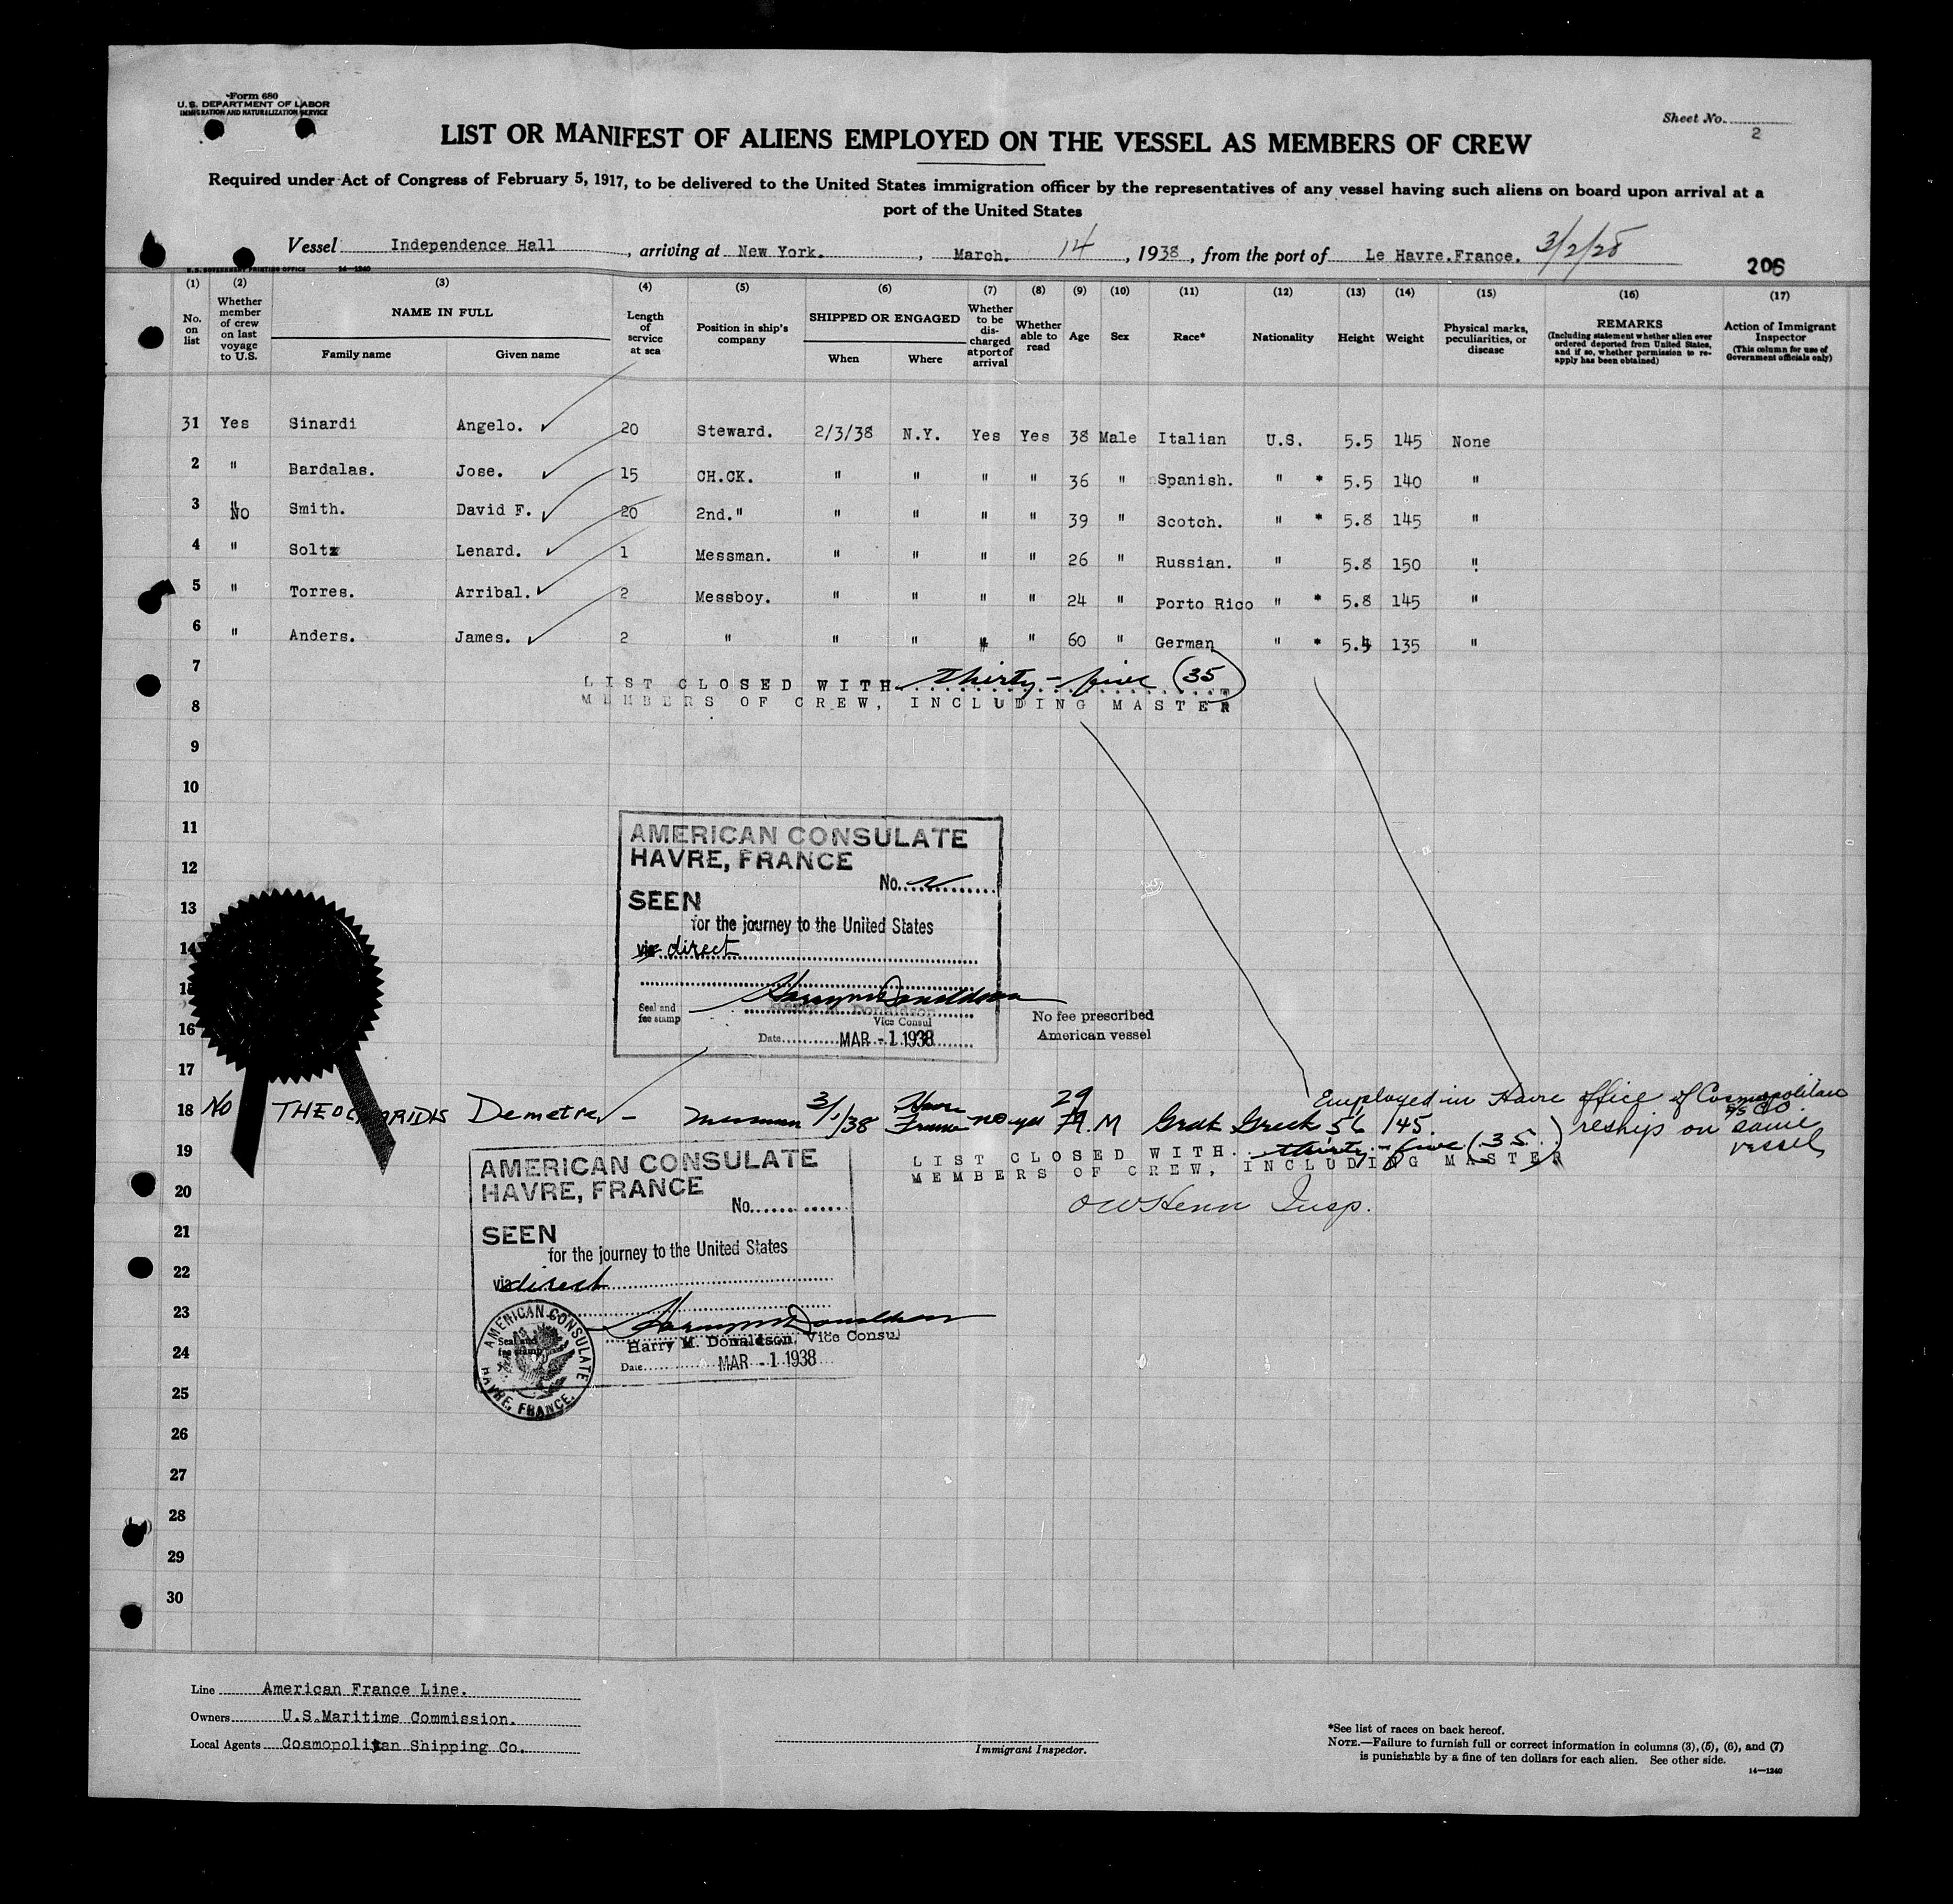 Form 680
U. S. DEPARTMENT OF LABOR
IMMIGRATION AND NATURALIZATION SERVICE
Sheet No. 2
LIST OR MANIFEST OF ALIENS EMPLOYED ON THE VESSEL AS MEMBERS OF CREW
Required under Act of Congress of February 5, 1917, to be delivered to the United States immigration officer by the representatives of any vessel having such aliens on board upon arrival at a
port of the United States
Vessel Independence Hall, arriving at New York., March. 14, 1938, from the port of Le Havre.France. 3/2/28
U.S. GOVERNMENT PRINTING OFFICE 14—1240
206
(1) (2) (3) (4) (5) (6) (7) (8) (9) (10) (11) (12) (13) (14) (15) (16) (17)
No. on list
Whether member of crew on last voyage to U.S.
NAME IN FULL
Family name Given name
Length of service at sea
Position in ship's company
SHIPPED OR ENGAGED
When Where
Whether to be discharged at port of arrival
Whether able to read
Age
Sex
Race*
Nationality
Height
Weight
Physical marks, peculiarities, or disease
REMARKS
(Including statement whether alien ever ordered deported from United States, and if so, whether permission to reapply has been obtained)
Action of Immigrant Inspector
(This column for use of Government officials only)
31 Yes Sinardi Angelo. 20 Steward. 2/3/38 N.Y. Yes Yes 38 Male Italian U.S. 5.5 145 None
2 " Bardalas. Jose. 15 CH.CK. " " " " 36 " Spanish. " * 5.5 140 "
3 No Smith. David F. 20 2nd." " " " " 39 " Scotch. " * 5.8 145 "
4 " Soltz Lenard. 1 Messman. " " " " 26 " Russian. " 5.8 150 "
5 " Torres. Arribal. 2 Messboy. " " " " 24 " Porto Rico " * 5.8 145 "
6 " Anders. James. 2 " " " " " 60 " German " * 5.4 135 "
7
LIST CLOSED WITH thirty-five (35)
8
MEMBERS OF CREW, INCLUDING MASTER
9
10
11
12
13
14
15
16
17
AMERICAN CONSULATE
HAVRE, FRANCE
No.
SEEN
for the journey to the United States
via direct
Harry M Donaldson
Harry M. Donaldson
Seal and fee stamp
Vice Consul
Date MAR - 1 1938
No fee prescribed
American vessel
18 No THEOCHARIDIS Demetre - Messman 3/1/38 Havre France no yes 29 M Greek Greek 5 6 145. Employed in Havre office of Cosmopolitan
S/S Co
reship on same
vessel
19
LIST CLOSED WITH thirty-five (35)
MEMBERS OF CREW, INCLUDING MASTER
20
O W Henn Insp.
21
22
23
24
25
26
27
28
29
30
AMERICAN CONSULATE
HAVRE, FRANCE
No.
SEEN
for the journey to the United States
via direct
Harry M Donaldson
Harry M. Donaldson, Vice Consul
Seal and fee stamp
Date MAR - 1 1938
AMERICAN CONSULATE
HAVRE, FRANCE.
Line American France Line.
Owners U.S.Maritime Commission.
Local Agents Cosmopolitan Shipping Co.
Immigrant Inspector.
*See list of races on back hereof.
NOTE.—Failure to furnish full or correct information in columns (3), (5), (6), and (7)
is punishable by a fine of ten dollars for each alien. See other side.
14—1240